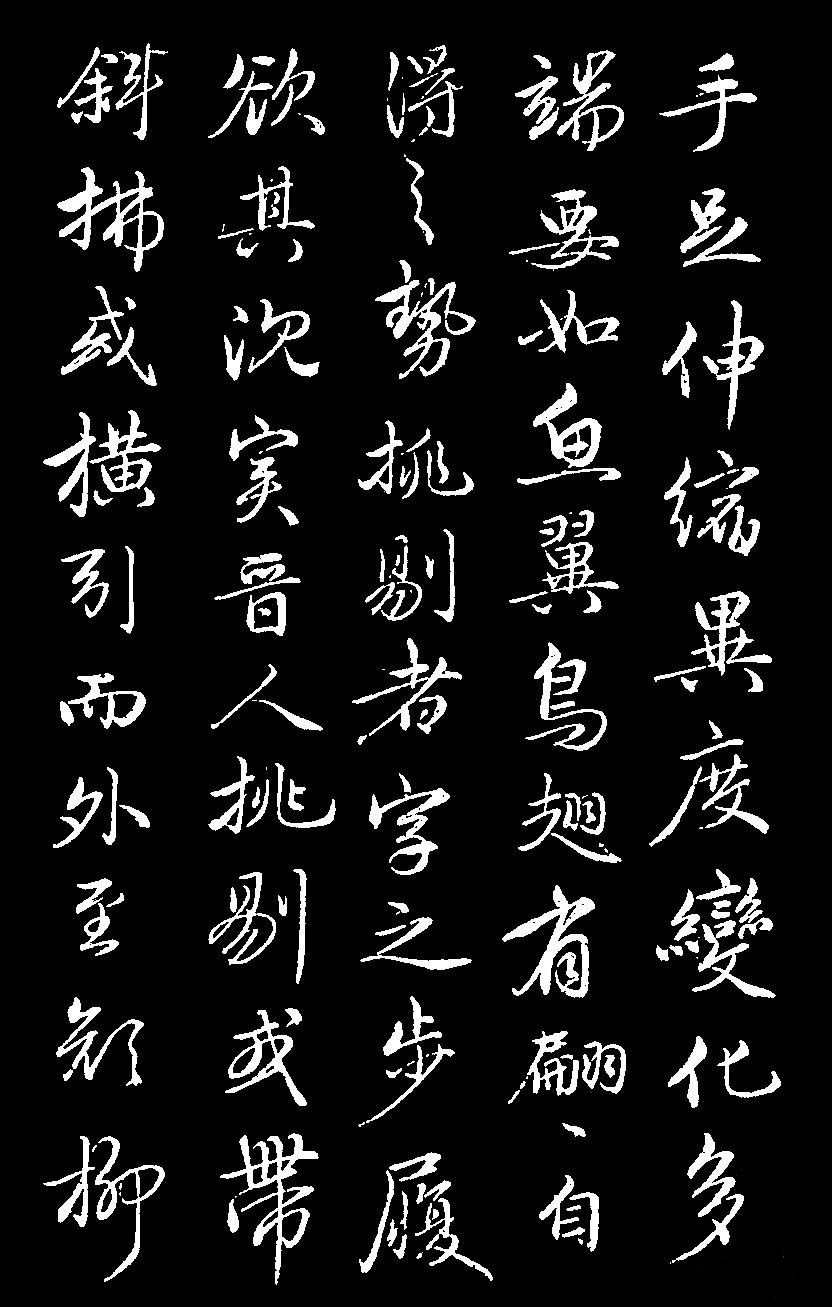 手足伸縮異度變化多
端要如魚翼鳥翅有翩〻自
得之勢挑剔者字之步履
欲其沉實晉人挑剔或帶
斜拂或橫引而外至顏柳